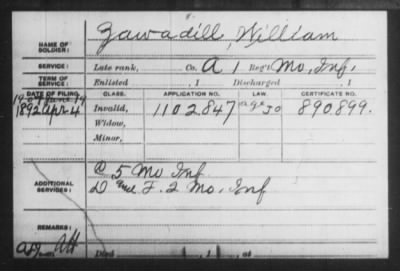 Zawadill, William
NAME OF SOLDIER:
SERVICE: Late rank, Co. A 1 Reg't Mo, Inf,
TERM OF SERVICE: Enlisted , 1 Discharged , 1
DATE OF FILING. CLASS. APPLICATION NO. LAW. CERTIFICATE NO.
1892 Apr 4 Invalid, 1102.847 890.899.
Widow,
Minor,
C 5 Mo Inf
ADDITIONAL SERVICES: D and F. 2 Mo, Inf
REMARKS:
Died , 1